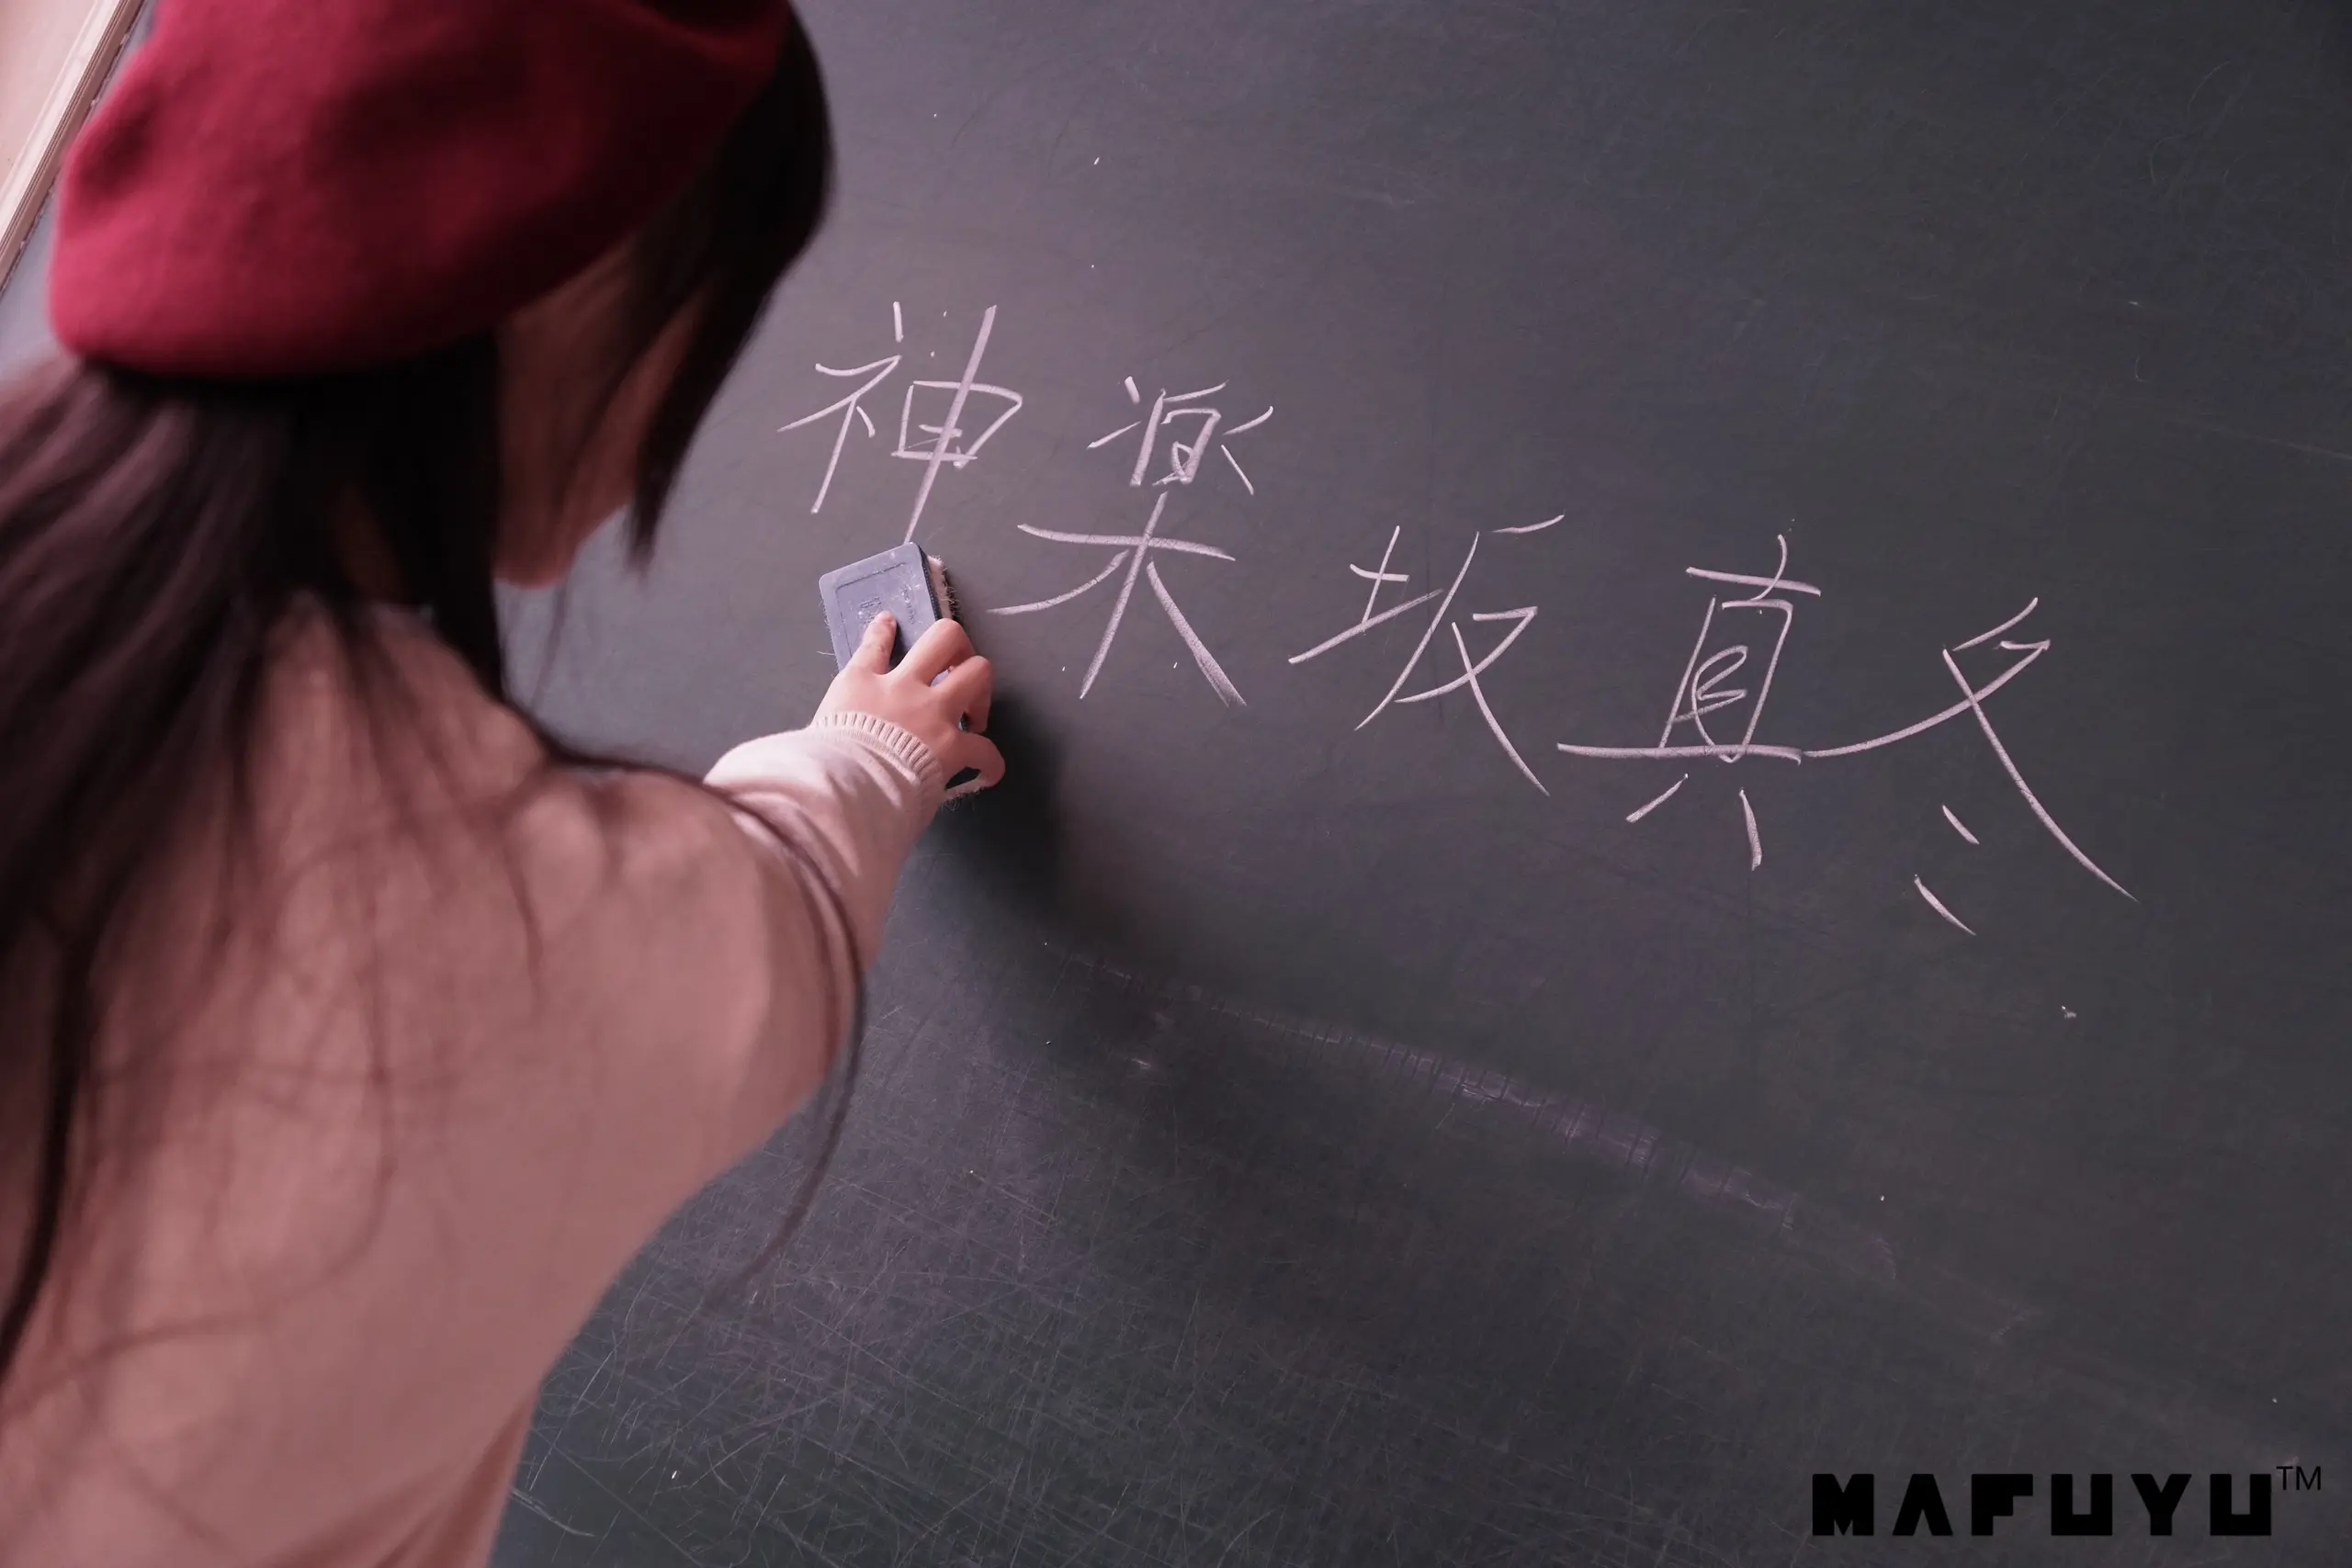 神楽坂真冬
MAFUYU™